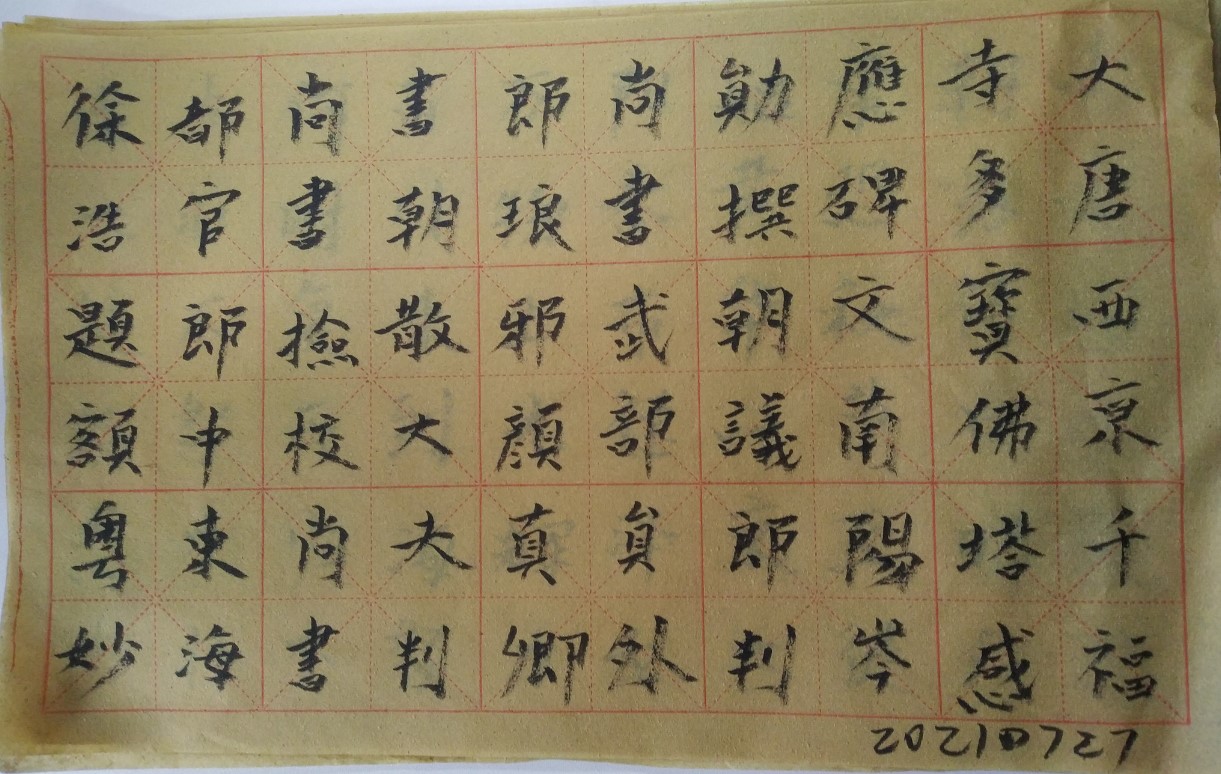 大唐西京千福
寺多寶佛塔感
應碑文南陽岑
勛撰朝議郎判
尚書武部員外
郎琅邪顏真卿
書朝散大夫判
尚書撿校尚書
都官郎中東海
徐浩題額粤妙
20210727